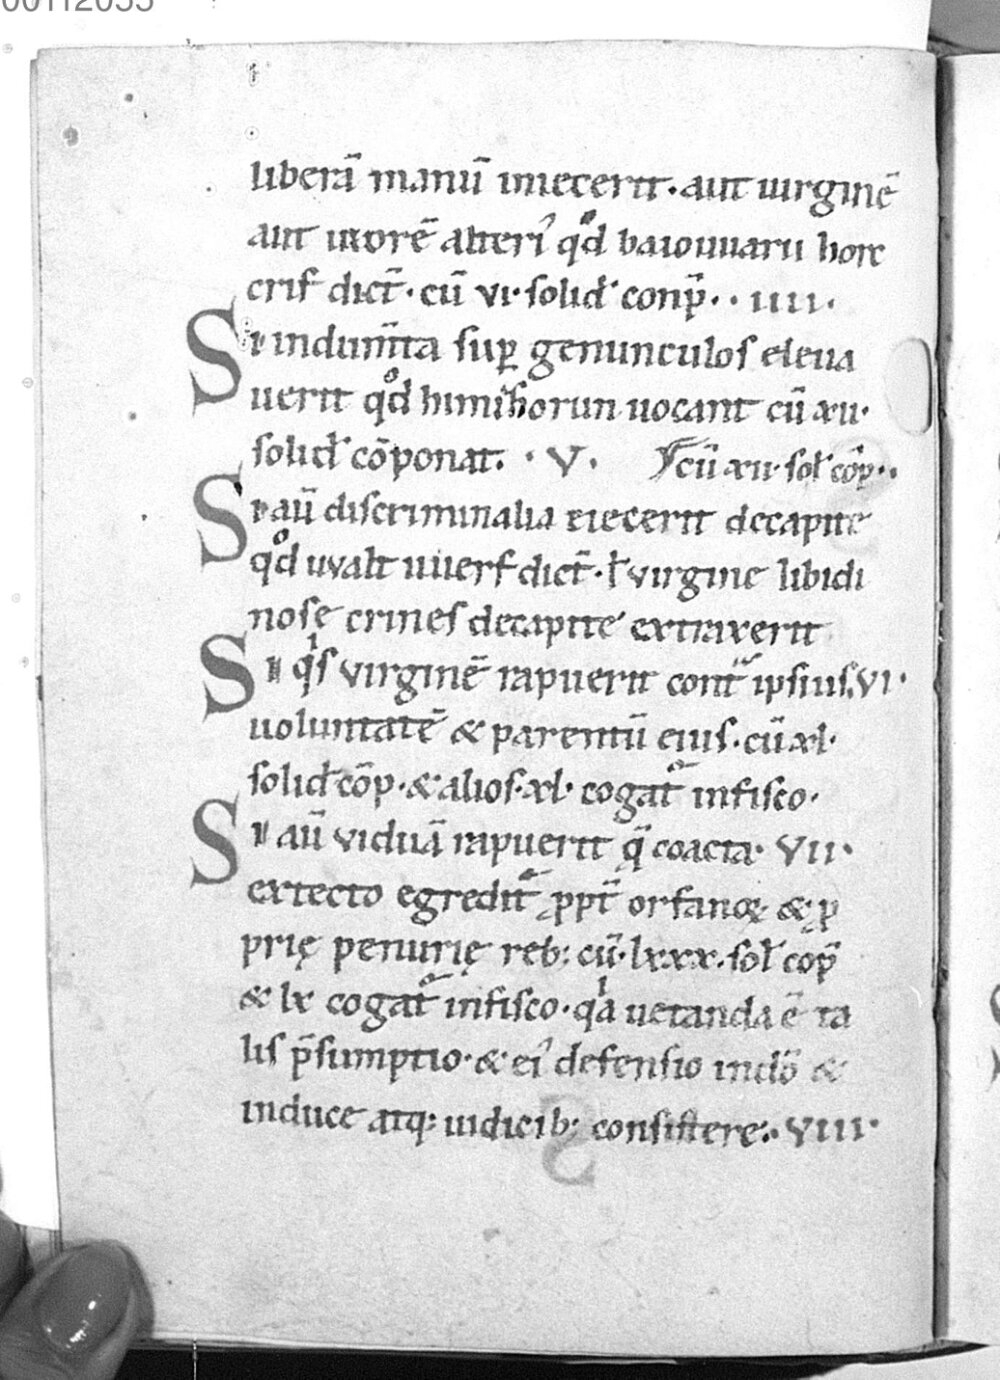 00112055
liberā manū iniecerit · aut uirginē
aut uxorē alteriꝰ qͦd baiouuarii horc
crif dict̄ · cū vi · solid̕ conp̄ · · iiii ·
Si indum̄ta sup̱ genunculos eleua
uerit qͦd himilzorun uocant cū xii ·
solid̕ cōponat · · V · cū xii · sol̕ cōp̄ · ·
Si aū discriminalia eiecerit decapite
qͦd uvalt uuerf dict̄ · l̕ virgine libidi
nose crines decapite extraxerit
Si qͥs virginē rapuerit cont̄ ipsius, VI ·
uoluntatē & parentū eius · cū xl ·
solid̕ cōp · & alios · xl · cogat᷑ infisco ·
Si aū viduā rapuerit q̄ coacta · VII ·
extecto egredit᷑ ꝓpt̄ orfanoꝝ & ꝓ
prię penurię reb; cū · lxxx · sol̕ cop̄
& lx cogat᷑ infisco · qͥa uetanda ē ta
lis p̄sumptio · & eiꝰ defensio indō &
induce atq; iudicib; consistere · · VIII ·